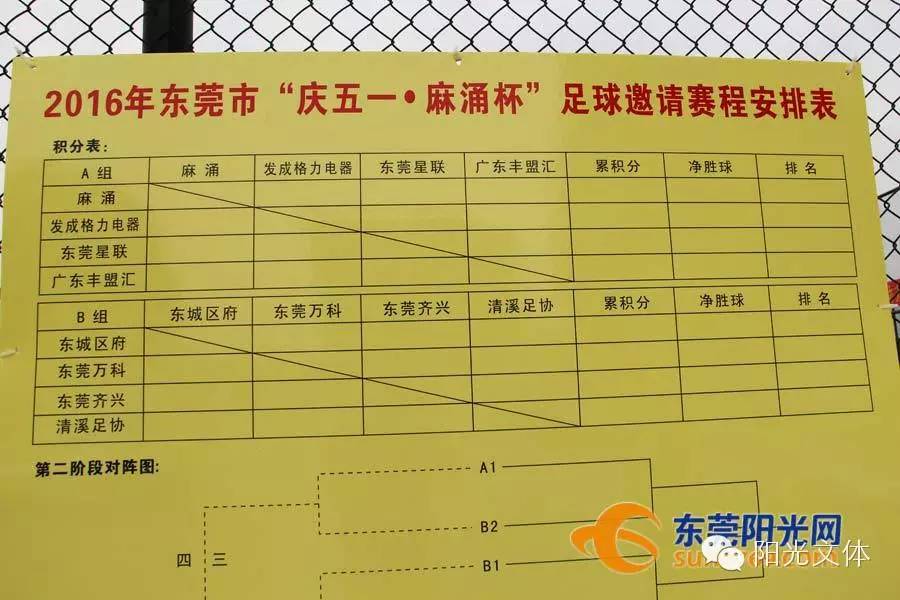 2016年东莞市“庆五一·麻涌杯”足球邀请赛程安排表
积分表：
A 组 麻 涌 发成格力电器 东莞星联 广东丰盟汇 累积分 净胜球 排 名
麻 涌
发成格力电器
东莞星联
广东丰盟汇
B 组 东城区府 东莞万科 东莞齐兴 清溪足协 累积分 净胜球 排 名
东城区府
东莞万科
东莞齐兴
清溪足协
第二阶段对阵图：
A1
B2
四 三
B1
东莞阳光网
阳光文体